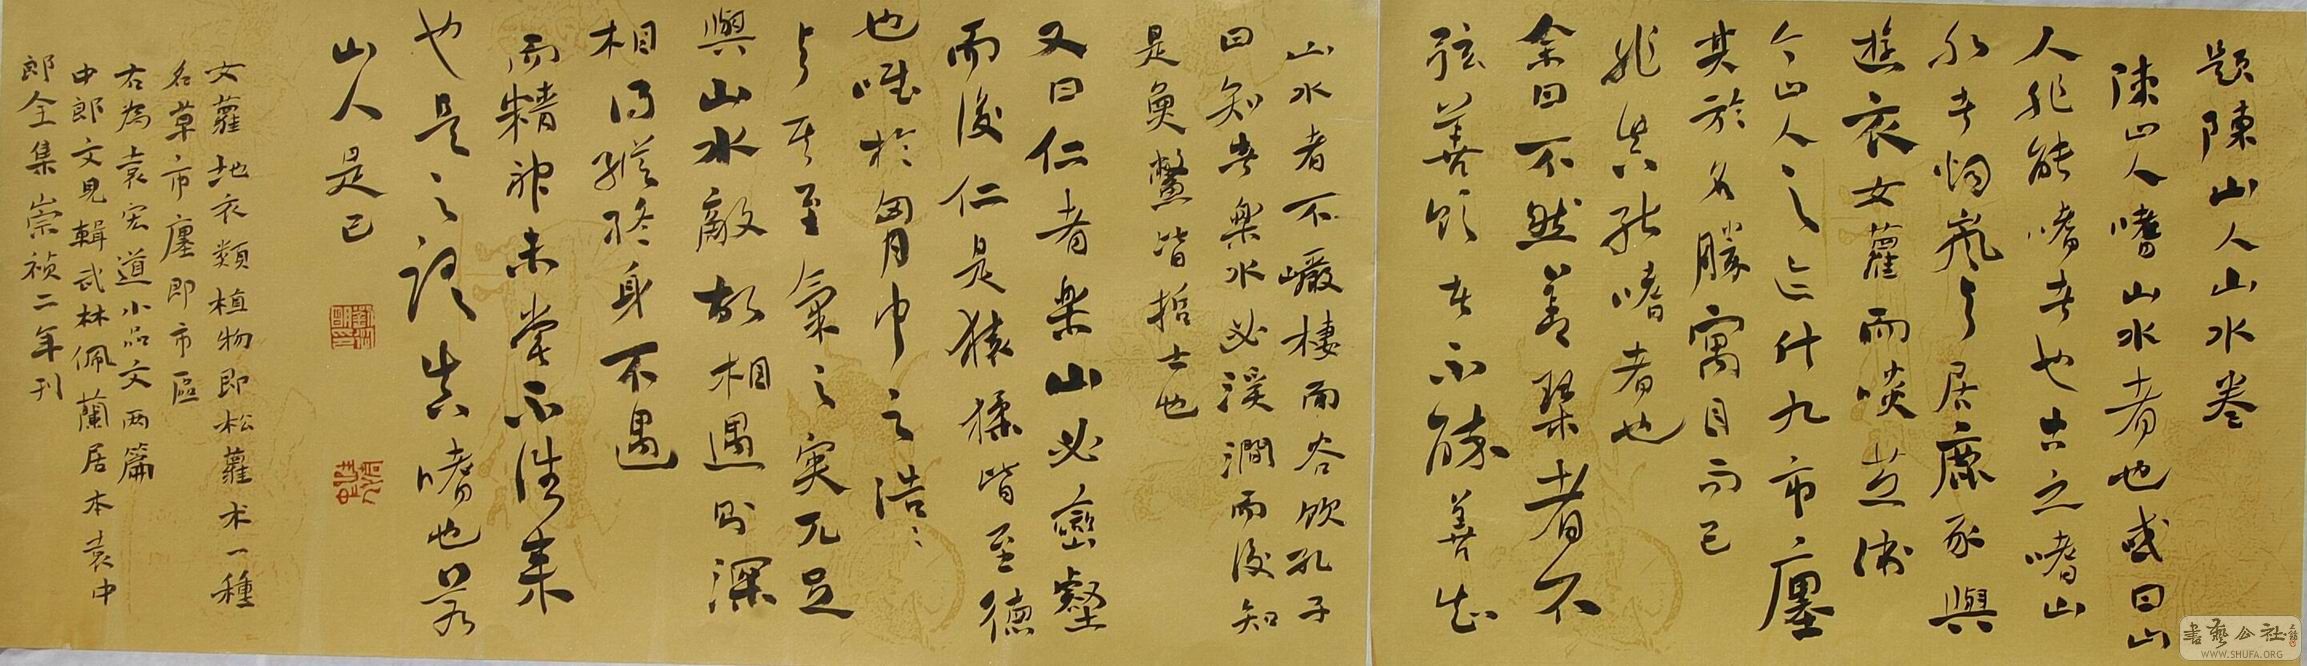 題陳山人山水卷
陳山人嗜山水者也或曰山
人非能嗜者也古之嗜山
水者烟嵐與居鹿豕與
遊衣女蘿而啖芝朮
今山人之迹什九市廛
其於名勝寓目而已
非真能嗜者也
余曰不然善琴者不
弦善飲者不醉善知
山水者不巖棲而谷飲孔子
曰知者樂水必溪澗而後知
是魚鱉皆哲士也
又曰仁者樂山必巒壑
而後仁是猿猱皆至德
也唯於胸中之浩〻
與其至氣之突兀足
與山水敵故相遇則深
相得縱終身不遇
而精神未嘗不往來
也是之謂真嗜也若
山人是已
女蘿地衣類植物即松蘿朮一種
名草市廛即市區
右為袁宏道小品文兩篇
中郎文見輯武林佩蘭居本袁中
郎全集崇禎二年刊
書藝公社
WWW.SHUFA.ORG